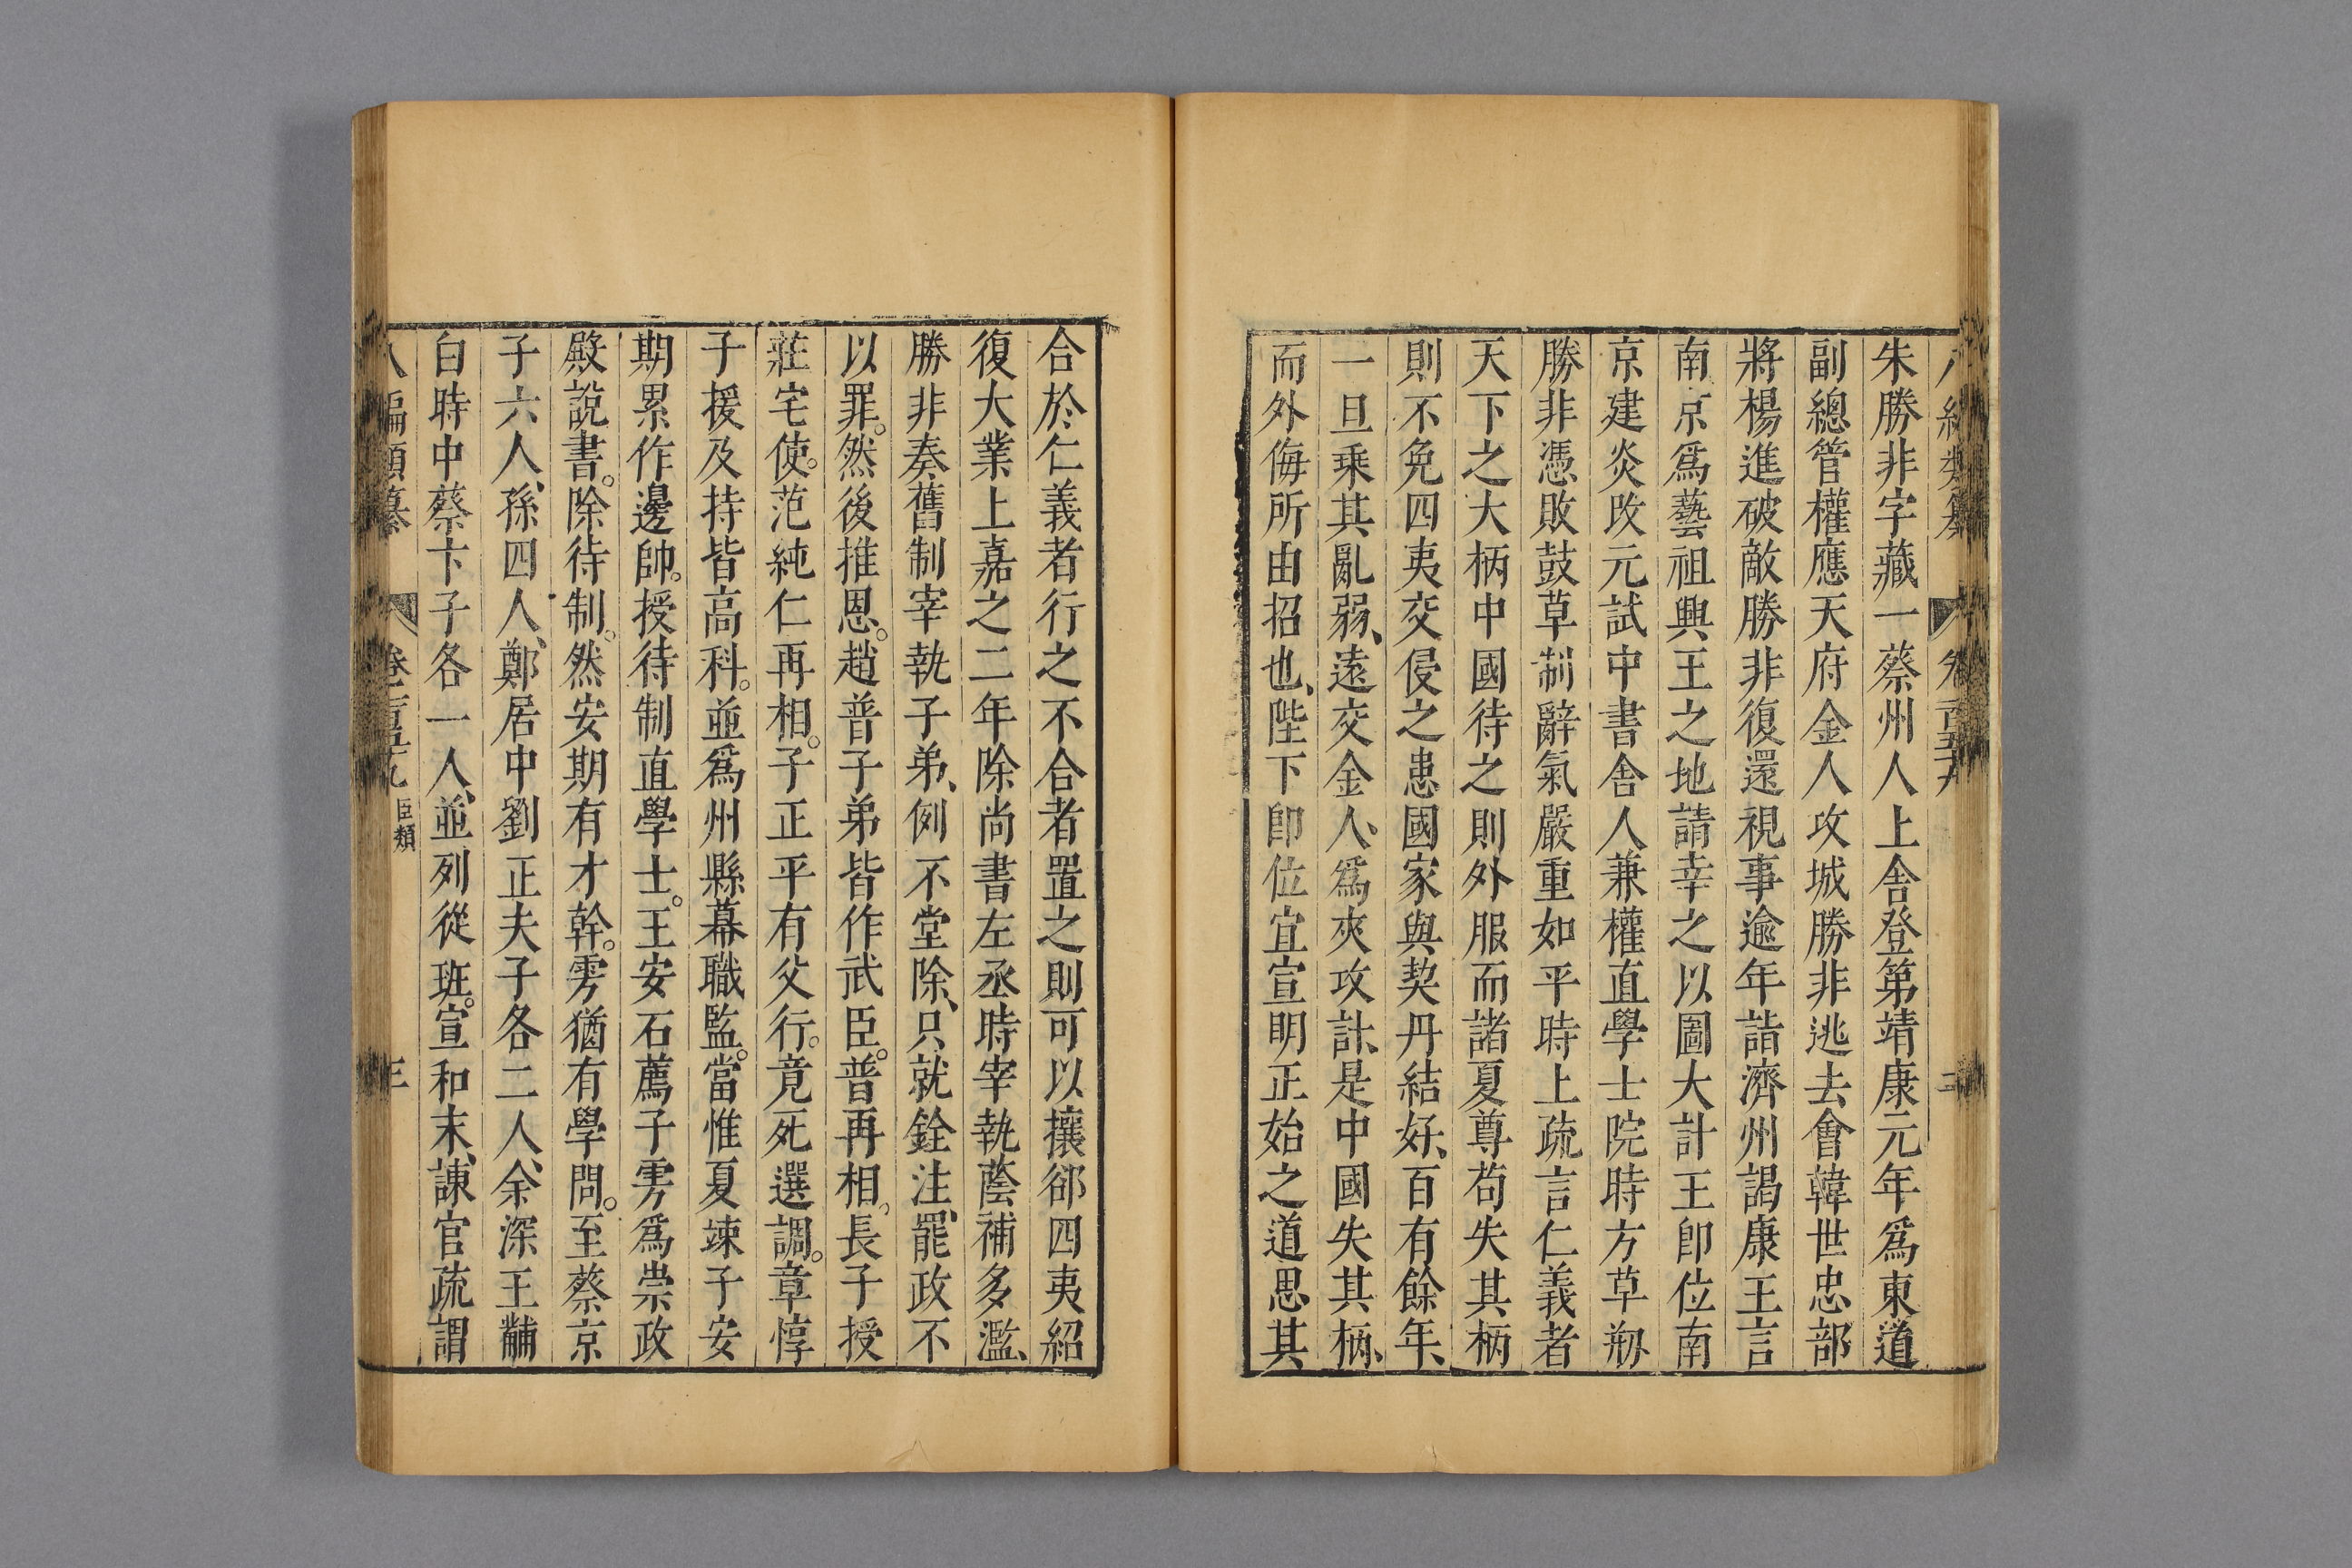 朱勝非字藏一蔡州人上舍登第靖康元年爲東道
副總管權應天府金人攻城勝非逃去會韓世忠部
將楊進破敵勝非復還視事逾年詣濟州謁康王言
南京爲藝祖興王之地請幸之以圖大計王卽位南
京建炎改元試中書舍人兼權直學士院時方草剏
勝非憑敗鼓草制辭氣嚴重如平時上疏言仁義者
天下之大柄中國待之則外服而諸夏尊苟失其柄
則不免四夷交侵之患國家與契丹結好、百有餘年、
一旦乗其亂弱、遠交金人、爲夾攻計、是中國失其柄、
而外侮所由招也、陛下卽位宜宣明正始之道思其
合於仁義者行之不合者置之則可以攘郤四夷紹
復大業上嘉之二年除尚書左丞時宰執蔭補多濫、
勝非奏舊制宰執子弟、例不堂除、只就銓注、罷政不
以罪。然後推恩。趙普子弟皆作武臣。普再相。長子授
莊宅使。范純仁再相。子正平有父行。竟死選調。章惇
子援及持皆高科。並爲州縣幕職監。當惟夏竦子安
期累作邊帥。授待制直學士。王安石薦子雱爲崇政
殿說書。除待制。然安期有才幹。雱猶有學問。至蔡京
子六人、孫四人、鄭居中劉正夫子各二人、余深王黼
白時中蔡卞子各一人、並列從班。宣和末、諫官疏謂
八編類纂 卷一百五十九 臣類 三